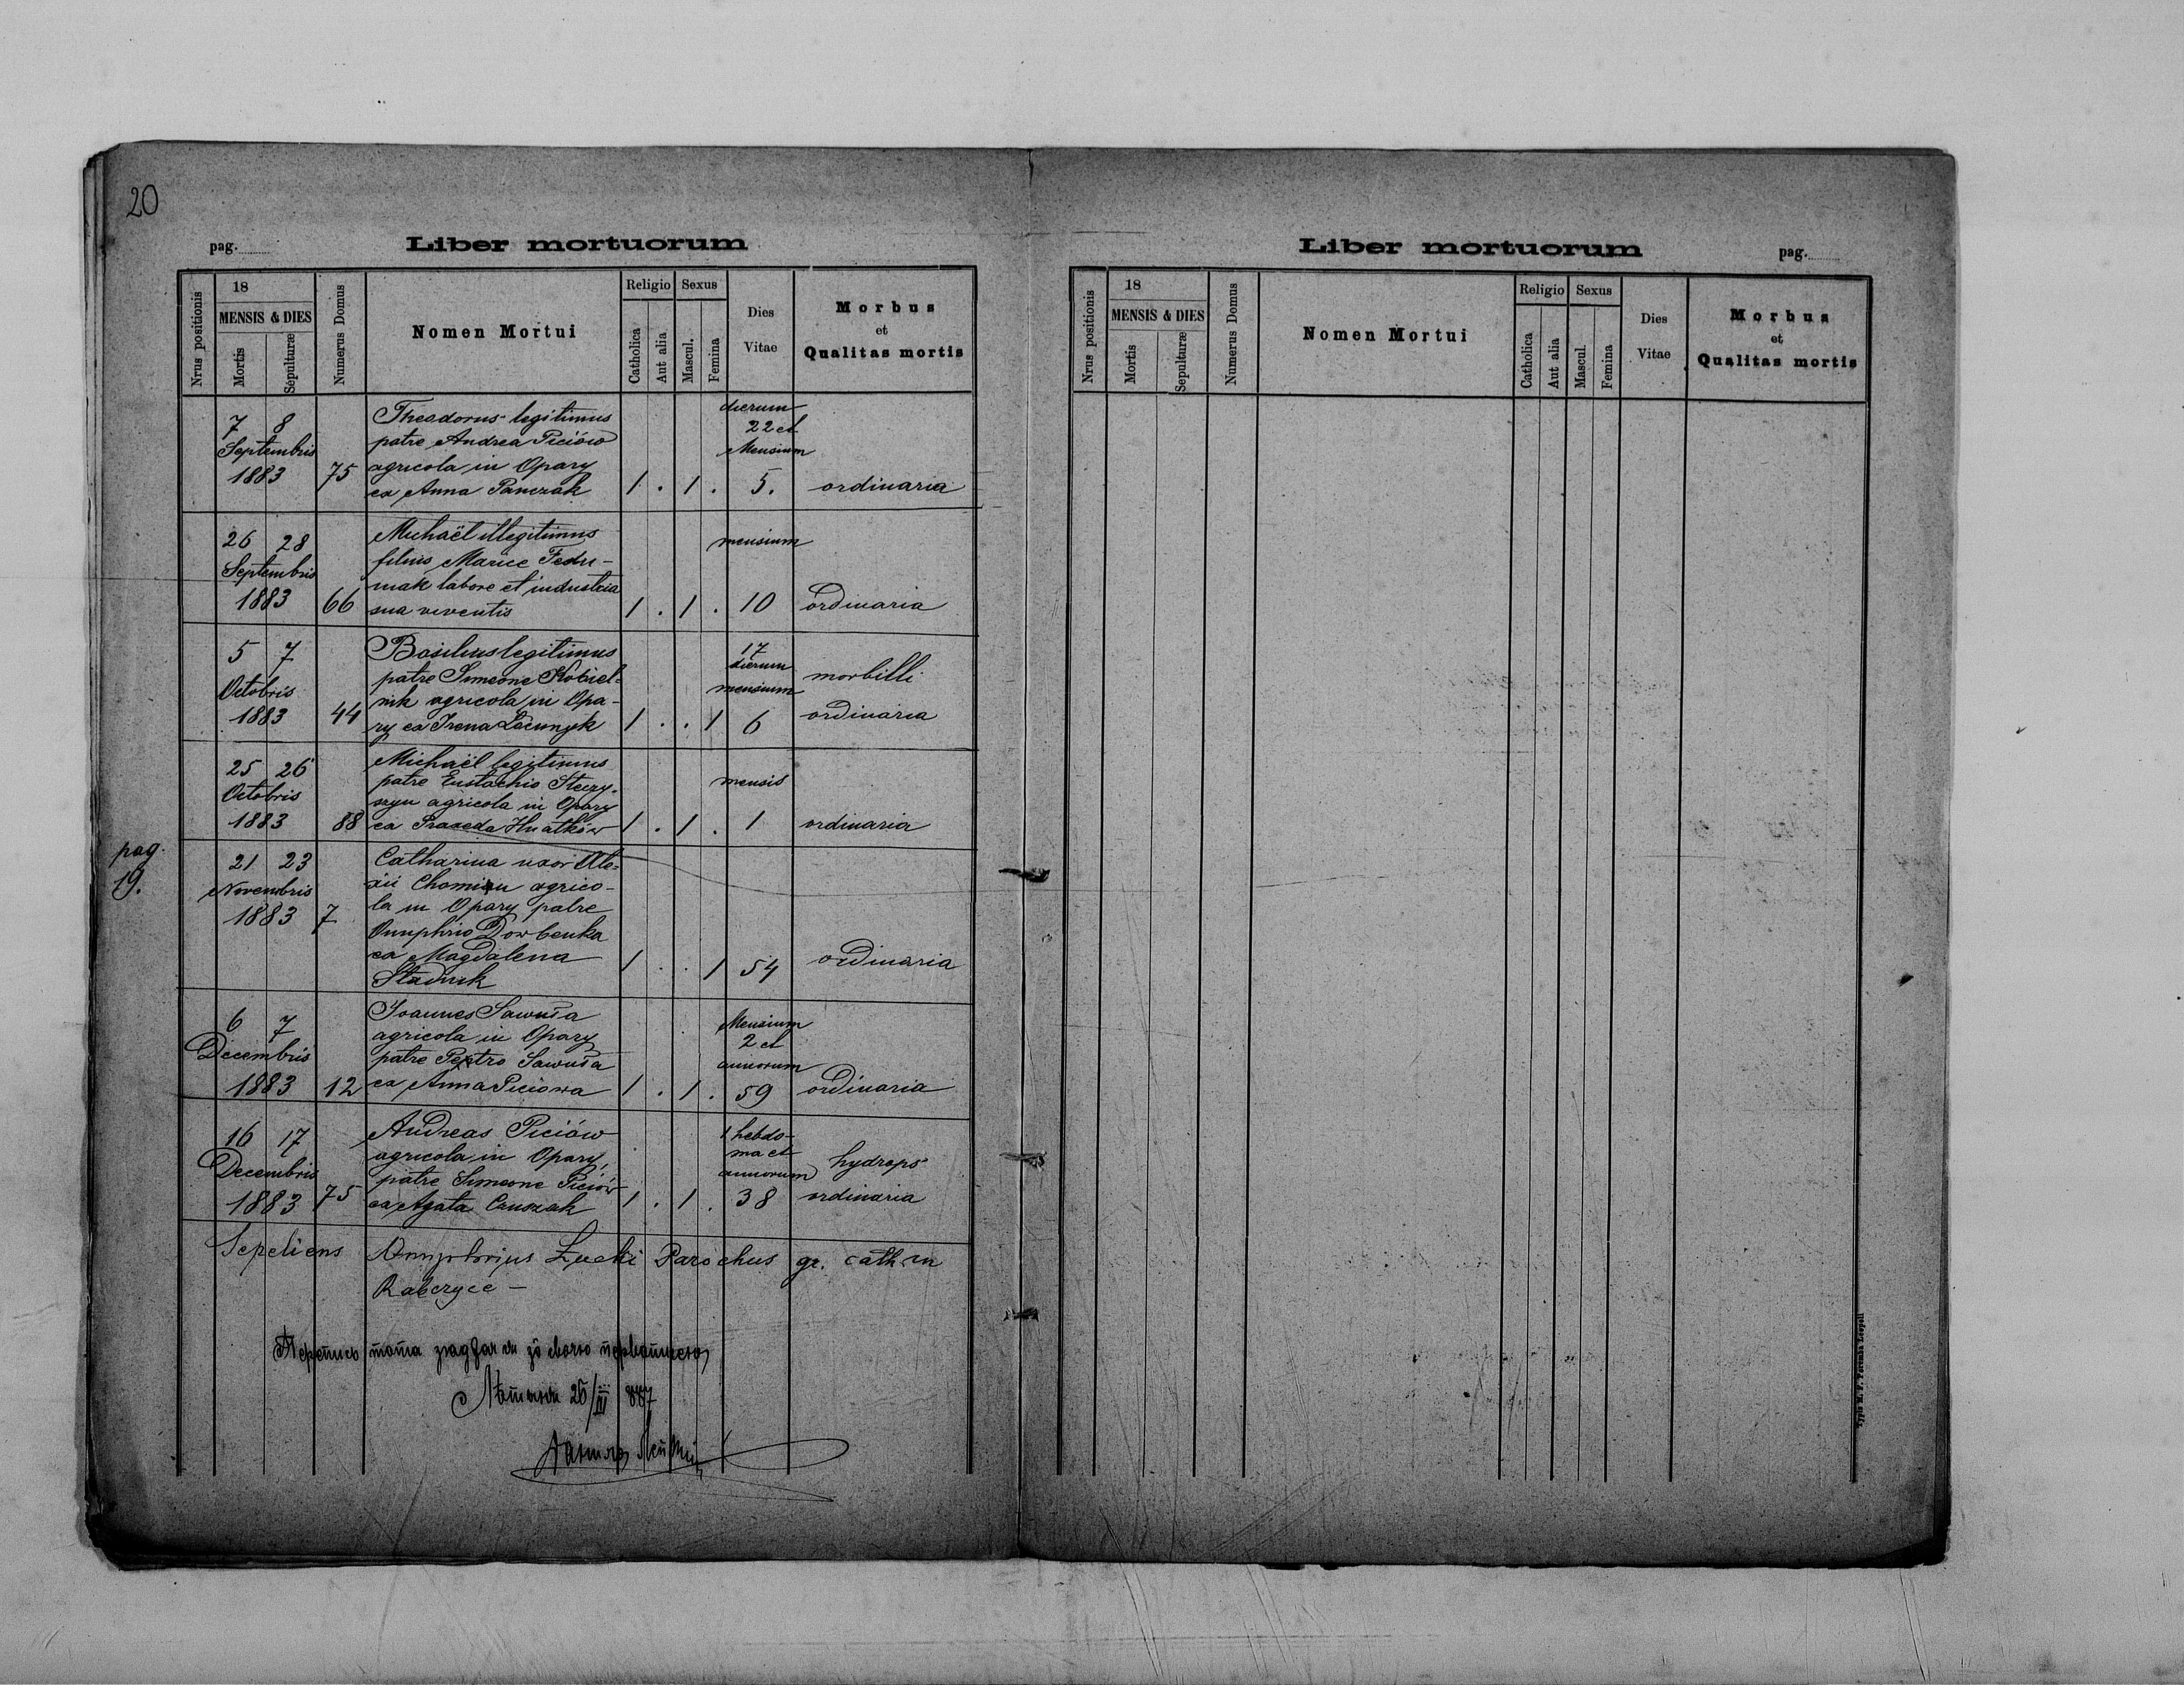 20
pag.
Liber mortuorum
Nrus positionis
18
MENSIS & DIES
Mortis
Sepulturæ
Numerus Domus
Nomen Mortui
Religio
Catholica
Aut alia
Sexus
Mascul.
Femina
Dies
Vitae
Morbus
et
Qualitas mortis
7 8
Septembris
1883 75
Theodorus legitimus
patre Andrea Piciów
agricola in Opary
ea Anna Panczak
1 . 1 .
dierum
22 et
Mensium
5.
ordinaria
26 28
Septembris
1883 66
Michaël illegitimus
filius Mariae Fedu-
mak labore et industria
sua viventis
1 . 1 .
mensium
10
ordinaria
5 7
Octobris
1883 44
Basilius legitimus
patre Simeone Kobiel-
nik agricola in Opa-
ry ea Irena
1 . . 1
17
dierum
mensium
6
morbilli
ordinaria
25 26
Octobris
1883 88
Michaël legitimus
patre Eustachio
agricola in Opary
ea Praxeda Hnatków
1 . 1 .
mensis
1
ordinaria
pag.
19.
21 23
Novembris
1883 7
Catharina uxor Ale-
xii agrico-
la in Opary patre
Onuphrio Dowbenka
ea Magdalena
Stadnik
1 . . 1
54
ordinaria
6 7
Decembris
1883 12
Joannes Sawuła
agricola in Opary
patre Petro Sawuła
ea Anna Piciowa
1 . 1 .
Mensium
2 et
annorum
59
ordinaria
16 17
Decembris
1883 75
Andreas Piciów
agricola in Opary,
patre Simeone Piciów
ea Agata
1 . 1 .
1 hebdo-
ma et
annorum
38
hydrops
ordinaria
Sepeliens Łucki Parochus gr. cath. in
Rabczyce —
25/III 887
Liber mortuorum
pag.
Nrus positionis
18
MENSIS & DIES
Mortis
Sepulturæ
Numerus Domus
Nomen Mortui
Religio
Catholica
Aut alia
Sexus
Mascul.
Femina
Dies
Vitae
Morbus
et
Qualitas mortis